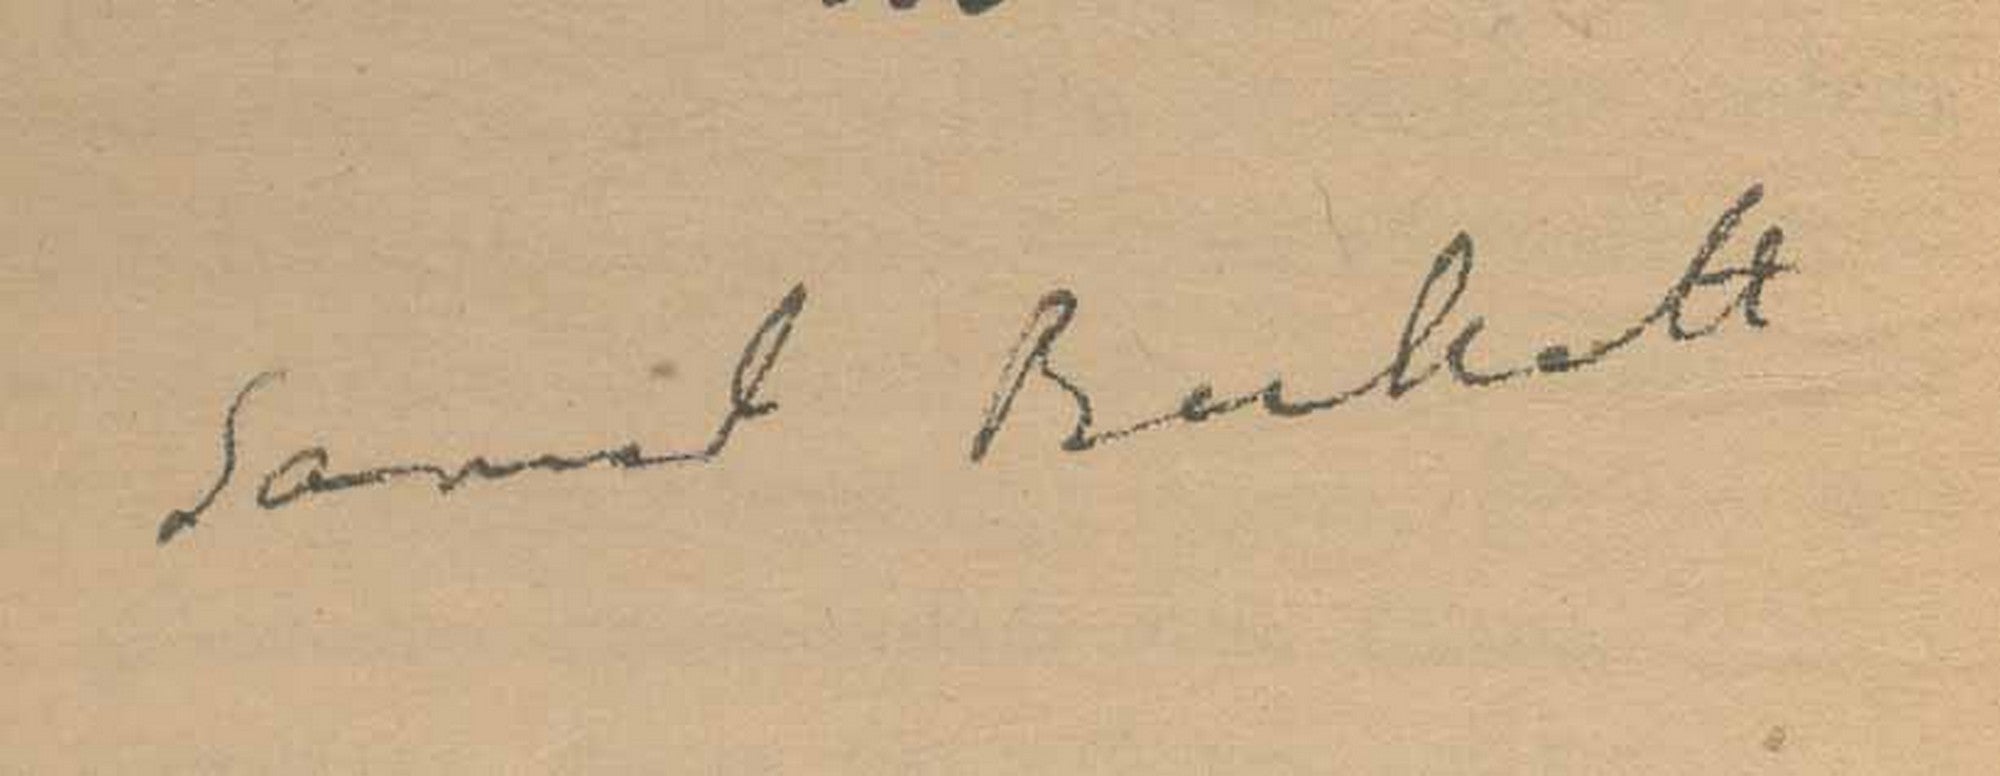 Samuel Beckett